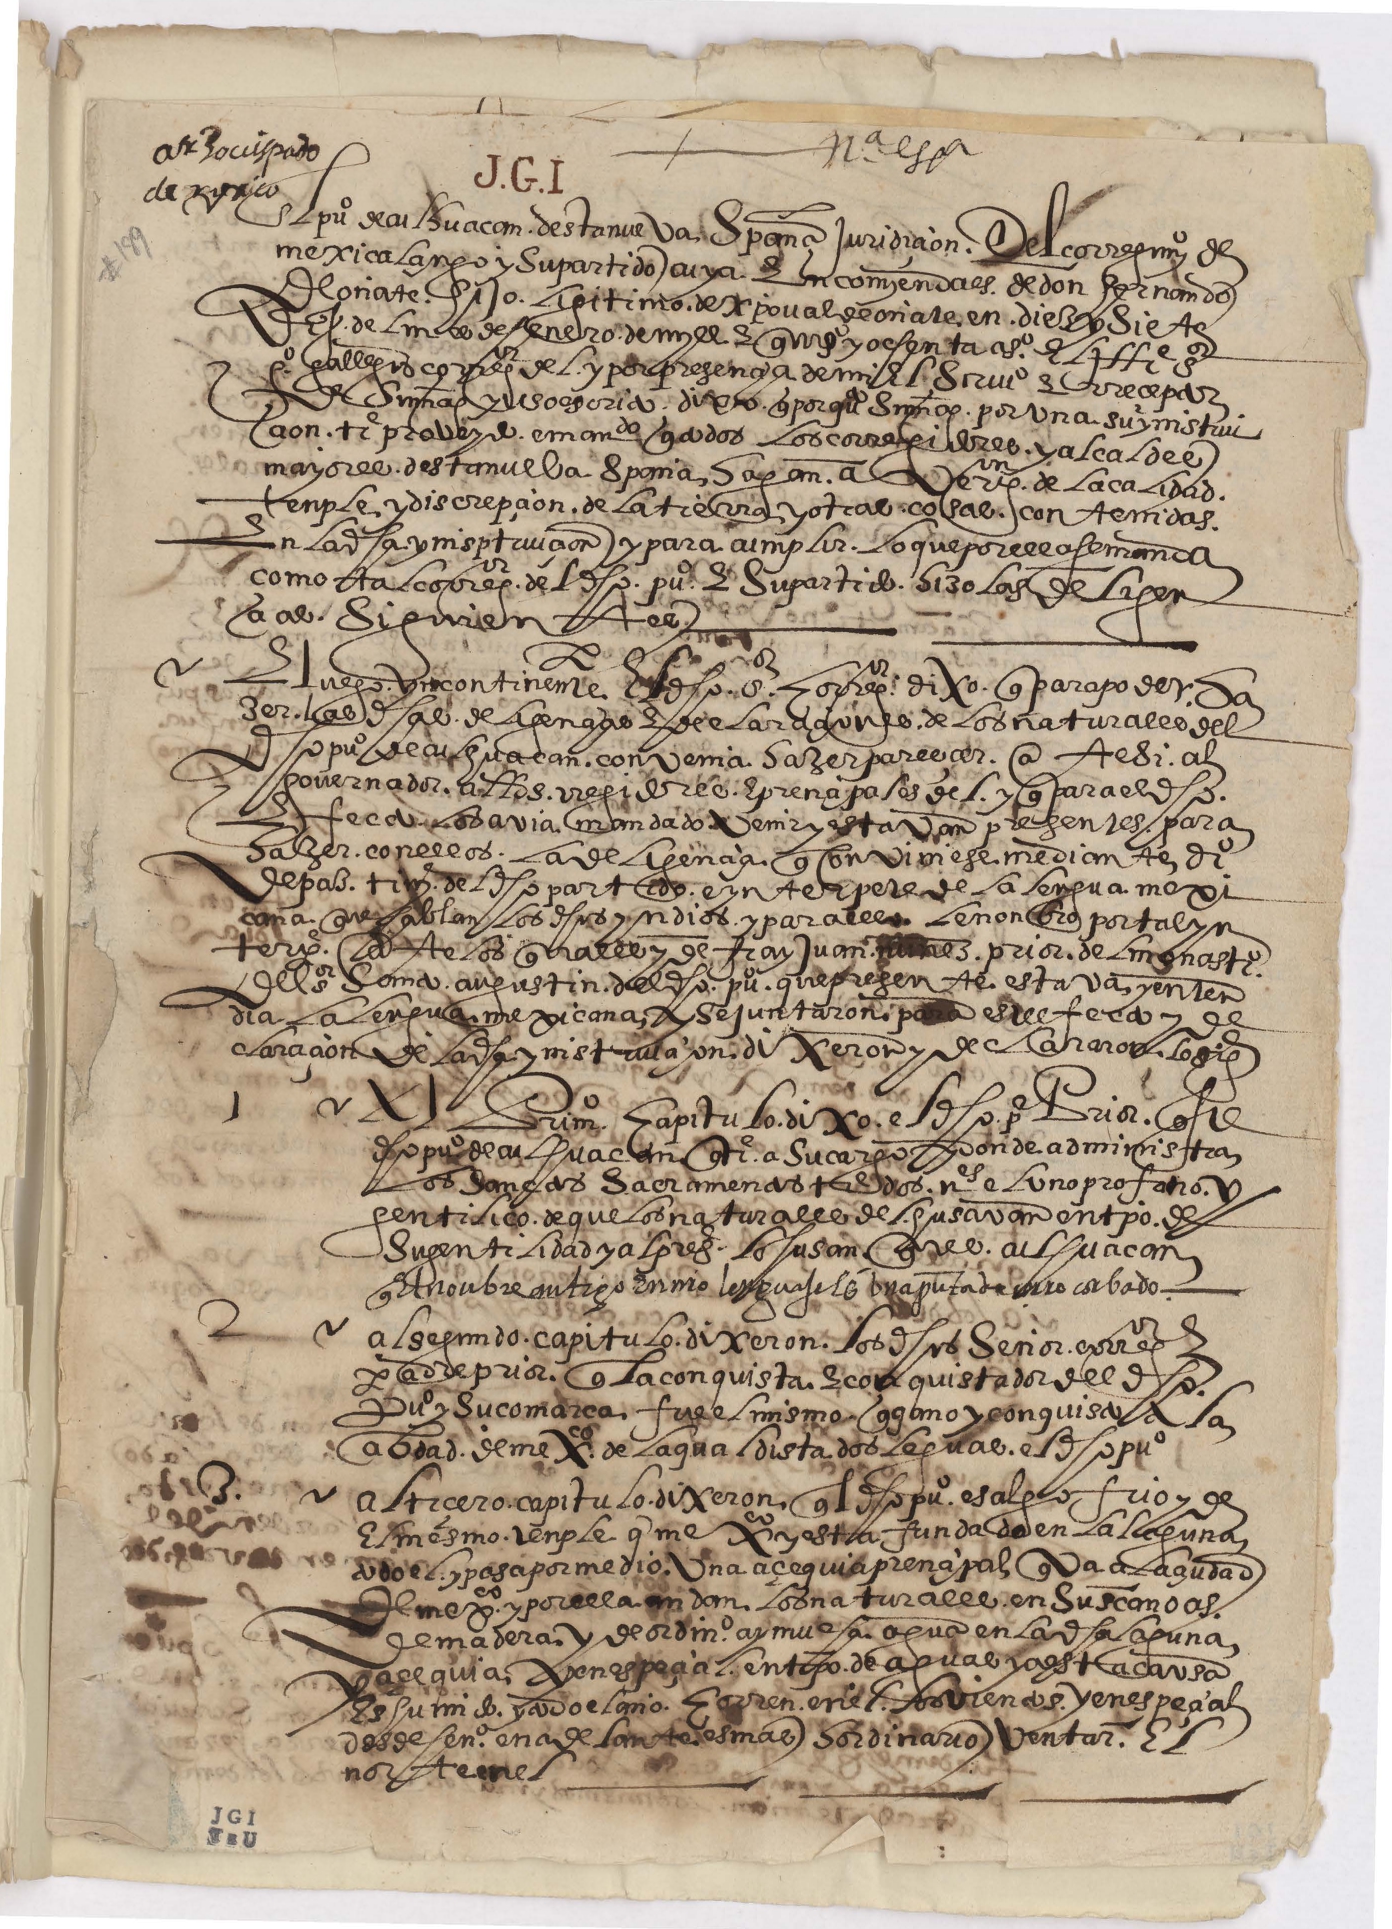 arzobispado
de mexico
J.G.I
nª espª
#199
El puº de culhuacan. desta nueva Spaña juridicion. Del corregimº de
mexicalzingo y su partido cuya Encomienda es. de don Fernando
De oñate. hijo. ligitimo. de xpoval de oñate. en. diez y siete
dias. del mes de henero. de mill E quinsº y ochenta aºs. El
gº gallegos corregºr del. y por presencia de mi El Scrivº
de Su mag. yuso escrito. dixo. q por quº Su mag. por una su ynstru
cion. tiº proveydo. e mandº q todos los corregidores. y alcaldes
mayores. desta nueba Spaña, hagan. averignº. de la calidad.
tenple. y discrepcion. de la tierra, y otras. cosas. contenidas.
En la dha ynistruicion y para cumplir. lo que por ella se manda
como tal corregºr. del dho. puº. E Su partido. hizo las deligen
cias. Siguientes
E luego. yncontinente. El dho. Sºr. Corregºr. dixo. q para poder. ha
zer. las dhas. deligencias E declaraciones. de los naturales. del
dho puº de culhuacan. convenia. hazer parecer. ante si. al
governador. allds. regidores. E prencipales del. y q para el dho.
Efecto. los avia. mandado. venir y estavan presentes. para
hazer. con ellos. la deligencia. q conviniese. mediante, diº
de paz. tinº. del dho partido. e ynterpete de la lengua mexi
cana. que hablan los dhos yndios. y para ello. le nonbro por tal yn
terpe. de fray Juan nuñez. prior. del monastº.
del Sºr Santo. augustin. del dho. puº. que presente. estava, y enten
dia. la lengua. mexicana, y se juntaron. para este efecto y de
claracion de la dha ynistruicion. dixeron y declararon. lo sigº
1 Al Primº. Capitulo. dixo. el dho. pe Prior. q Este
dho puº de culhuacan qtiº. a su cargo y donde administra
los Santos Sacramentos tiº dos. nes el uno profano. y
gentilico. de que los naturales del. husavan en tpo. de
Su gentilidad y al presº. lo husan ques. culhuacan
q El nonbre antigo En nrõ lenguaje Es una punta de cerro corbado
2 al segundo. capitulo. dixeron. los dhos Señor. corregºr E
padre prior. q la conquista. E conquistador del dho.
Puº y Su comarca. fue el mismo. q gano y conquisto A la
cibdad. de mexco. de la qual dista dos leguas. el dho puº
3. al ticero. capitulo. dixeron, q l dho puº. es algo frio y de
El mesmo tenple q mexco y esta fundado en la laguna
todo el. y pasa por medio. una acequia prencipal q va a la ciudad
De mexco. y por ella andan. los naturales. en Sus canoas.
de madera. y de ordinº. ay mucha. agua en la dha laguna
y acequia, y en especial. en tpo. de aguas y a esta causa
Es humido. y todo el año. Corren. en el. los vientos. y en especial
desde henº. en adelante. es mas hordinario ventar. El
norte en el
JGI
TxU